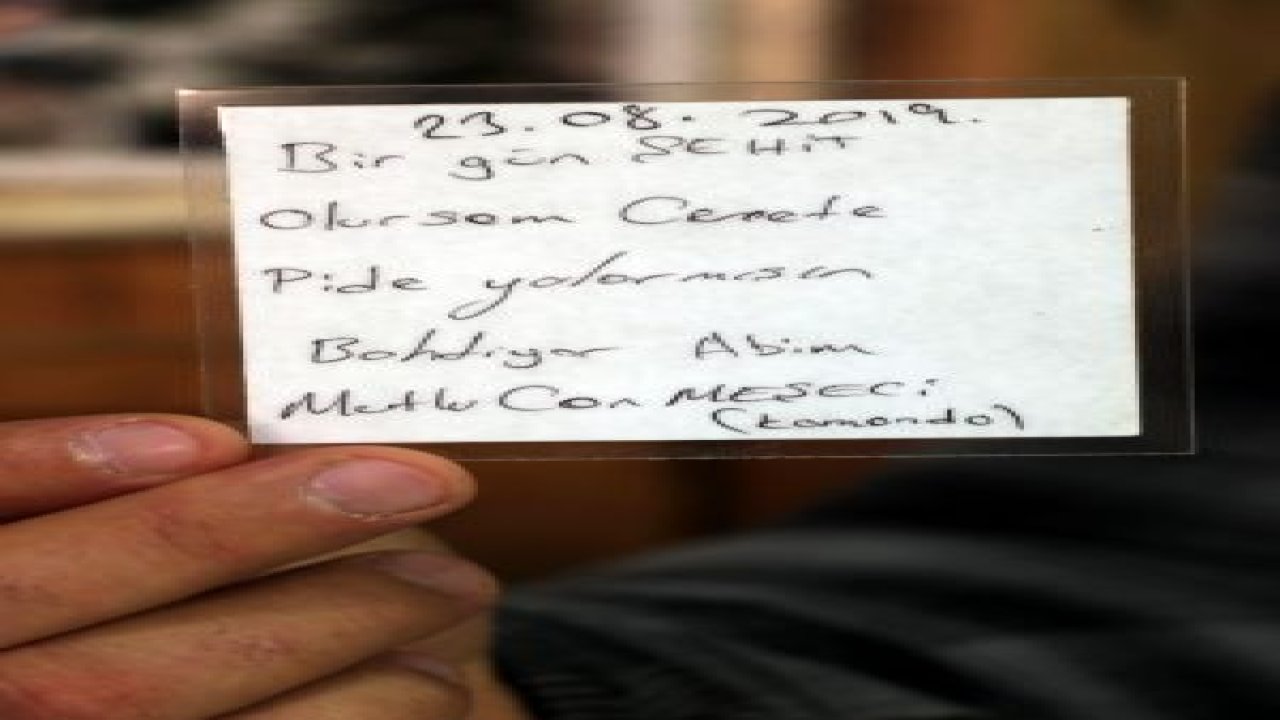 23.08.2019.
Bir gün ŞEHİT
Olursam Cenete
Pide yaparmısın
Bahdiyar Abim
Mutlu Can MESECİ
(komando)